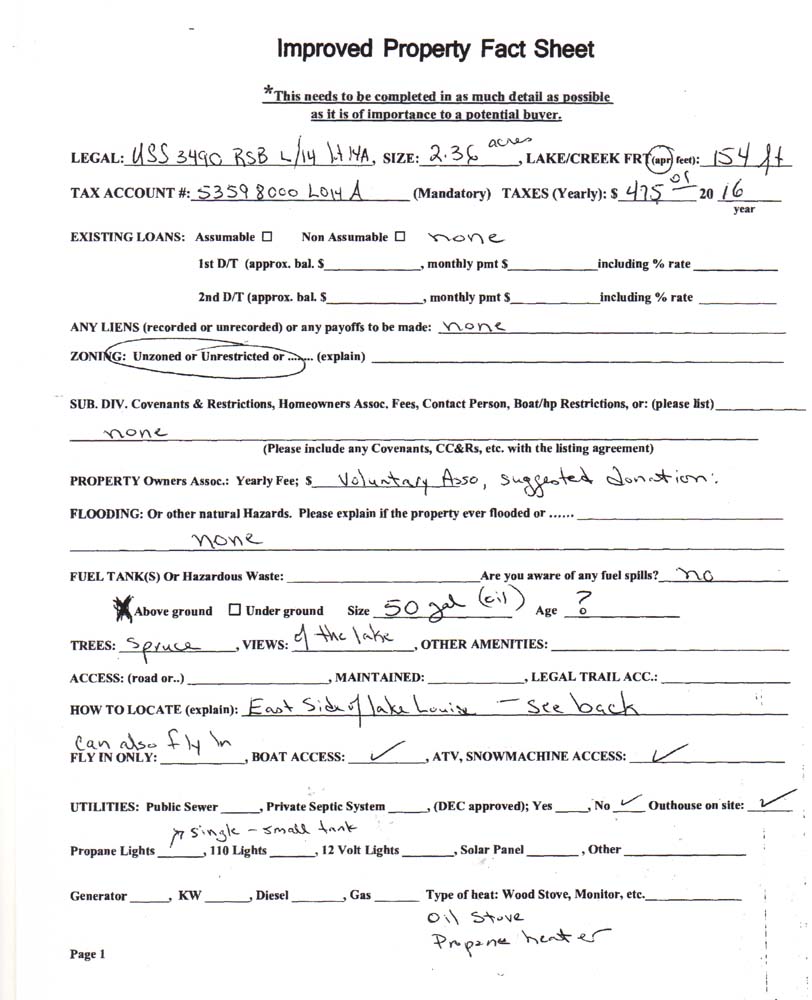 Improved Property Fact Sheet
*This needs to be completed in as much detail as possible
as it is of importance to a potential buyer.
LEGAL: USS 3490 RSB L/14 Lt 14A, SIZE: 2.36 acres, LAKE/CREEK FRT (apr feet): 154 ft
TAX ACCOUNT #: 53598000 L014A (Mandatory) TAXES (Yearly): $ 475 05 20 16
year
EXISTING LOANS: Assumable ☐ Non Assumable ☐ none
1st D/T (approx. bal. $____________, monthly pmt $____________including % rate ____________
2nd D/T (approx. bal. $____________, monthly pmt $____________including % rate ____________
ANY LIENS (recorded or unrecorded) or any payoffs to be made: none
ZONING: Unzoned or Unrestricted or ........ (explain) ____________
SUB. DIV. Covenants & Restrictions, Homeowners Assoc. Fees, Contact Person, Boat/hp Restrictions, or: (please list)____________
none
(Please include any Covenants, CC&Rs, etc. with the listing agreement)
PROPERTY Owners Assoc.: Yearly Fee; $ Voluntary Asso, suggested donation.
FLOODING: Or other natural Hazards. Please explain if the property ever flooded or ...... ____________
none
FUEL TANK(S) Or Hazardous Waste: ____________Are you aware of any fuel spills? no
☒ Above ground ☐ Under ground Size 50 gal (oil) Age ?
TREES: Spruce, VIEWS: of the lake, OTHER AMENITIES: ____________
ACCESS: (road or..) ____________, MAINTAINED: ____________, LEGAL TRAIL ACC.: ____________
HOW TO LOCATE (explain): East Side of lake Louise - See back
Can also fly in
FLY IN ONLY: ____________, BOAT ACCESS: ✓, ATV, SNOWMACHINE ACCESS: ✓
UTILITIES: Public Sewer _____, Private Septic System _____, (DEC approved); Yes _____, No ✓ Outhouse on site: ✓
↗ single - small tank
Propane Lights ______, 110 Lights ______, 12 Volt Lights ______, Solar Panel ______, Other ____________
Generator _____, KW _____, Diesel _____, Gas _____ Type of heat: Wood Stove, Monitor, etc.____________
Oil Stove
Propane heater
Page 1